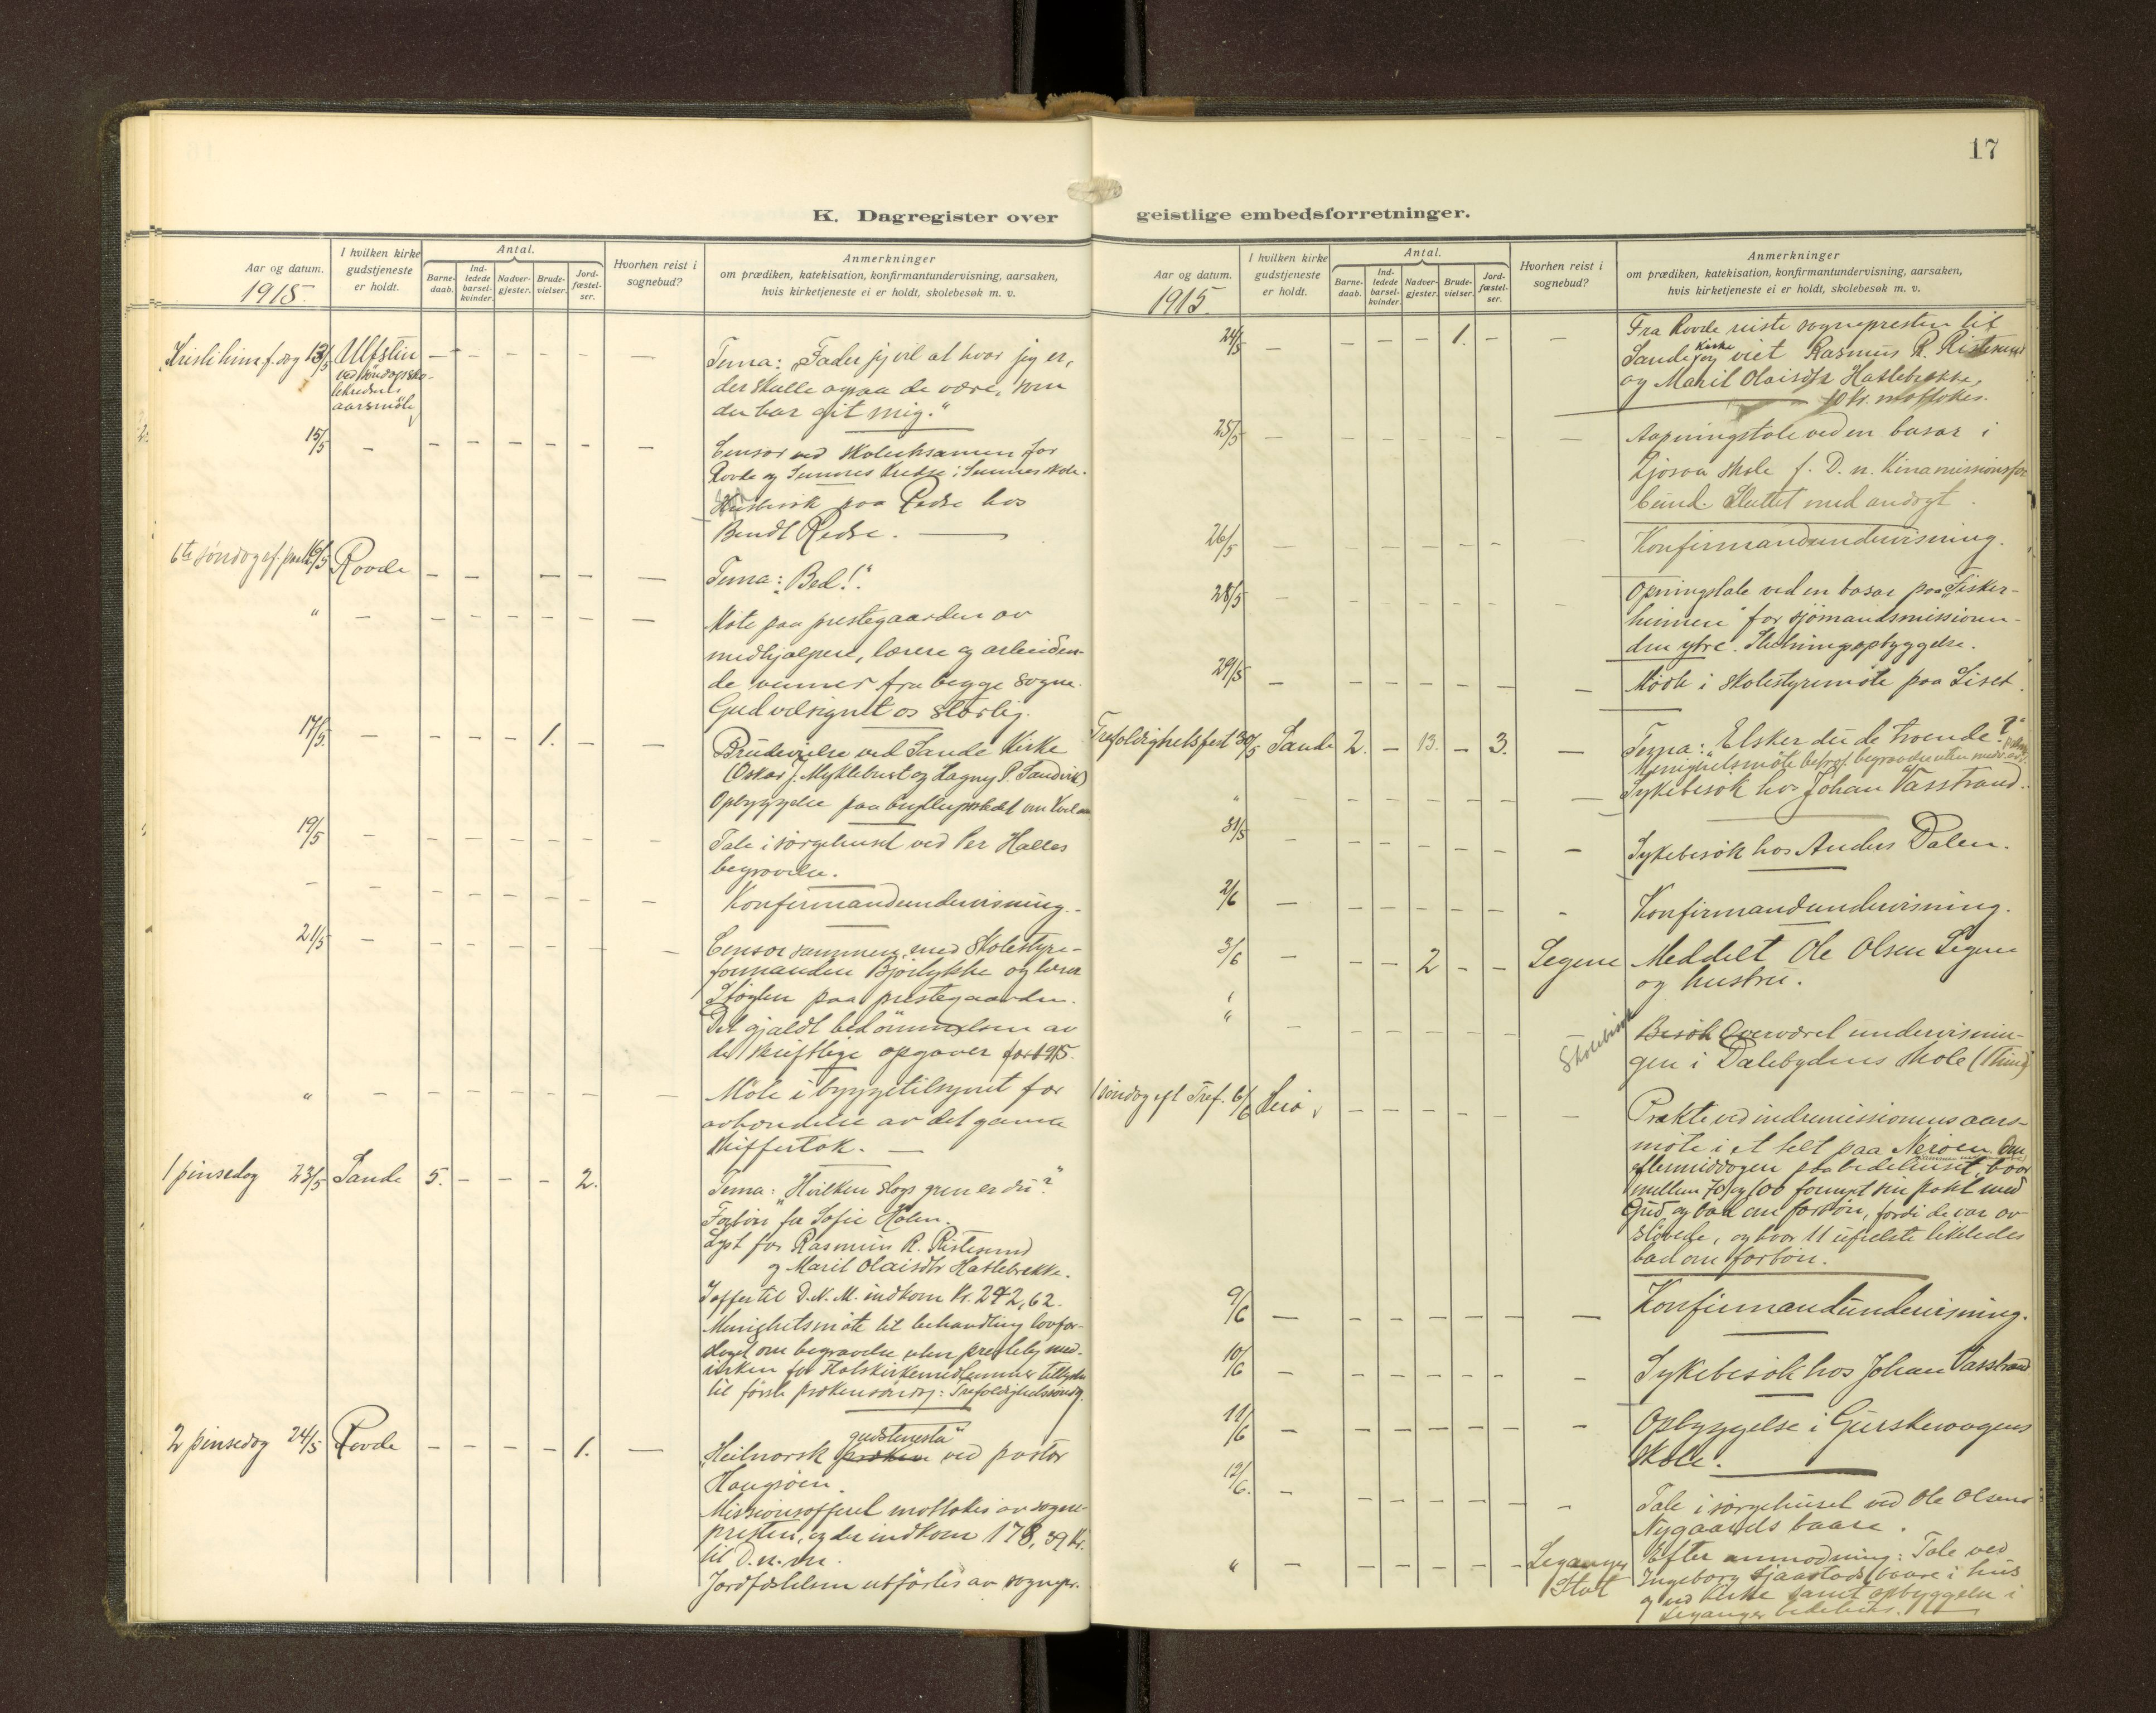 17
K. Dagregister over
geistlige embedsforretninger.
Aar og datum.
1915.
I hvilken kirke
gudstjeneste
er holdt.
Antal.
Barne-
daab.
Ind-
ledede
barsel-
kvinder.
Nadver-
gjester.
Brude-
vielser.
Jord-
fæstel-
ser.
Hvorhen reist i
sognebud?
Anmerkninger
om prædiken, katekisation, konfirmantundervisning, aarsaken,
hvis kirketjeneste ei er holdt, skolebesøk m. v.
Kristi himf. dag 13/5 Ulfstin — — — — — —
ved söndagssko-
aarsmöte
Tema: „Fader jeg vil at hvor jeg er,
der skulle ogsaa de være, som
du har git mig."
15/5 — — — — — — —
Censor ved skoleeksamen for
Rovde og
paa Redse hos
Bendt Redse.
6te söndag ef. paaske 16/5 Rovde — — — — —
Tema: „Bed!"
" — — — — — — —
Möte paa prestegaarden av
medhjælpere, lærere og arbeiden-
de venner fra begge sogne.
Gud velsignet os storlig.
17/5. — — — — 1. — —
Brudevielse ved Sande Kirke
(Oskar J. Myklebust og Hagny P. Sandvik)
Opbyggelse paa bryllupstedet om kvelden
19/5 — — — — — — —
Tale i sörgehuset ved Per Halles
begravelse.
— — — — — — — —
Konfirmandundervisning.
21/5 — — — — — — —
Censor sammen med skolestyre-
formanden Bjørlykke og lærer
paa prestegaarden.
Det gjaldt bedömmelsen av
de skriftlige opgaver for 1915.
" — — — — — — —
Möte i byggetilsynet for
avhændelse av det gamle
skiffertak. —
1 pinsedag 23/5 Sande 5. — — — 2.
Tema: „Hvilken slags gren er du"?
Forbön for Sofie Holm.
Lyst for Rasmus R. Ristesund
og Maril Olaisdtr Hatlebrekke.
I offer til D.N.M. indkom Kr. 242,62.
Menighetsmöte til behandling lovfor-
slaget om begravelse uten prestelig med-
virken for statskirkemedlemmer tillyses
til förste prækensöndag: Trefoldighetssöndag.
2 pinsedag 24/5 Rovde — — — — 1. —
gudstenesta"
„Heilnorsk præken ved pastor
Haugsöen.
Missionsofferet mottokes av sogne-
presten, og der indkom 178,39 Kr.
til D.n.m.
Jordfæstelsen utförtes av sognepr.
Aar og datum.
1915.
I hvilken kirke
gudstjeneste
er holdt.
Antal.
Barne-
daab.
Ind-
ledede
barsel-
kvinder.
Nadver-
gjester.
Brude-
vielser.
Jord-
fæstel-
ser.
Hvorhen reist i
sognebud?
Anmerkninger
om prædiken, katekisation, konfirmantundervisning, aarsaken,
hvis kirketjeneste ei er holdt, skolebesøk m. v.
24/5 — — — — 1. — —
Fra Rovde reiste sognepresten til
Sande Kirke og viet Rasmus R. Ristesund
og Maril Olaisdtr Hatlebrekke,
10 kr. mottokes.
25/5 — — — — — — —
Aapningstale ved en basar i
skole f. D. n. Kinamissionsfor-
bund. Sluttet med andagt.
26/5 — — — — — — —
Konfirmandundervisning.
28/5 — — — — — — —
Opningstale ved en basar paa „Fisker-
heimen" for sjömandsmissionen
den ytre. Slutningsopbyggelse.
29/5 — — — — — — —
Mödte i skolestyremöte paa Liset.
Trefoldighetsfest 30/5 Sande 2. — 13. — 3. —
Tema: „Elsker du de troende?"
Menighetsmöte betræf. begravelse uten
" — — — — — — —
Sykebesök hos Johan Vasstrand.
31/5 — — — — — — —
Sykebesök hos Anders Dalen.
2/6 — — — — — — —
Konfirmandundervisning.
3/6 — — — 2 — — Segene
Meddelt Ole Olsen Segene
og hustru.
" — — — — — — — Skolebesök
Besök Overværet undervisnin-
gen i Dalebygdens skole
1 söndag eft Tref. 6/6 Herö — — — — — —
Prækte ved indremissionens aars-
möte i et telt paa Om
eftermiddagen paa bedehuset, hvor
mellem 70 og 100 fornyet sin pakt med
Gud og bad om forbön, fordi de var av-
slövede, og hvor 11 ufrelste likeledes
bad om forbön.
9/6 — — — — — — —
Konfirmandundervisning.
10/6 — — — — — — —
Sykebesök hos Johan Vasstrand
11/6 — — — — — — —
Opbyggelse i Gurskevaagens
skole.
12/6. — — — — — — —
Tale i sörgehuset ved Ole Olsens
Nygaards baare.
" — — — — — — Leganger
Stat
Efter anmodning: Tale ved
Ingeborg Sjaastads baare i hus
og ved kirke samt opbyggelse i
Leganger bedehus.